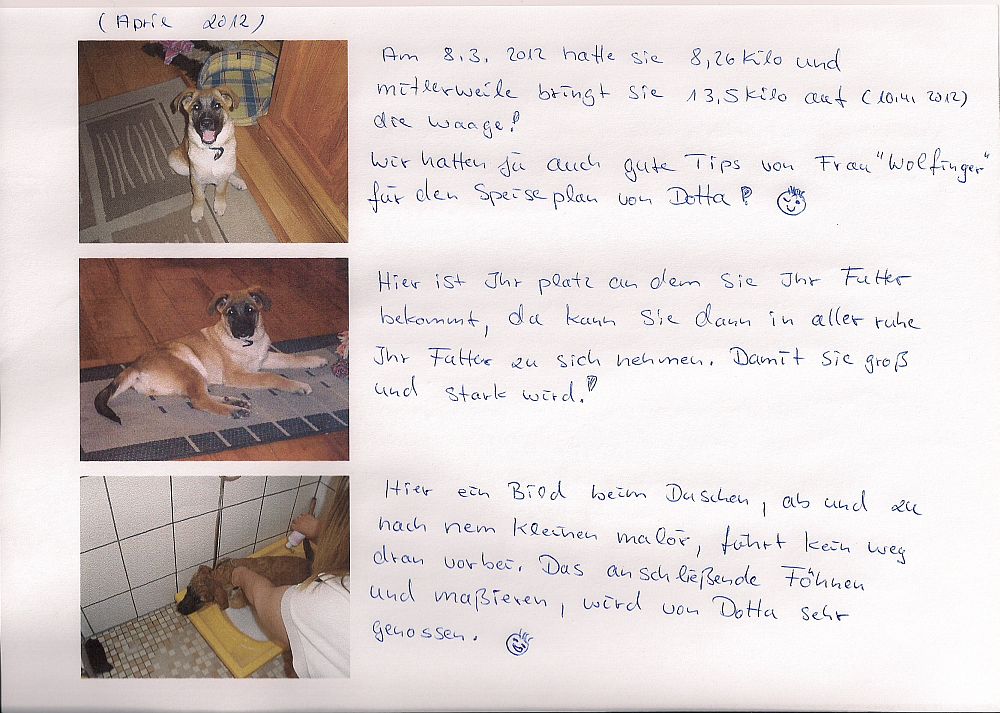 (April 2012)
Am 8.3. 2012 hatte sie 8,26 Kilo und
mitlerweile bringt sie 13,5 Kilo auf (10.4. 2012)
die Waage!
Wir hatten ja auch gute Tips von Frau "Wolfinger"
für den Speiseplan von Dotta!
Hier ist Ihr platz an dem Sie Ihr Futter
bekommt, da kann Sie dann in aller ruhe
Ihr Futter zu sich nehmen. Damit Sie groß
und stark wird.!
Hier ein Bild beim Duschen, ab und zu
nach nem kleinen malör, führt kein weg
dran vorbei. Das anschließende Föhnen
und maßieren, wird von Dotta sehr
genossen.